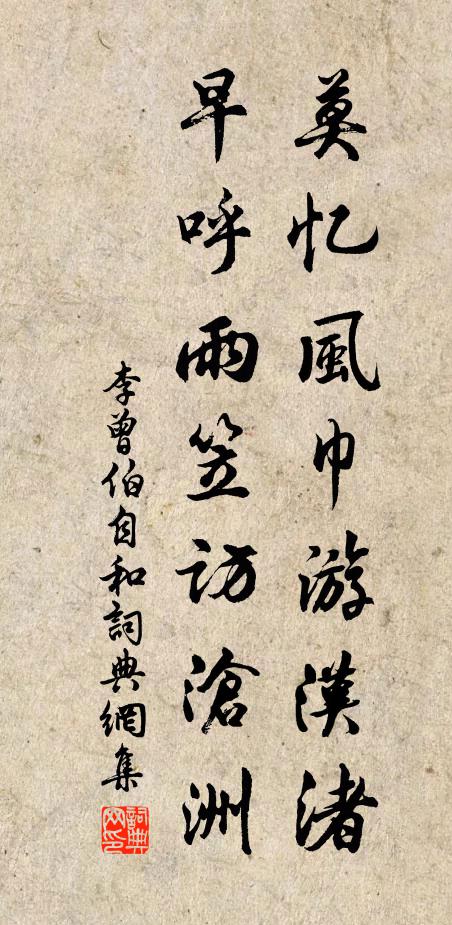 莫忆風巾游漢渚
早呼雨笠訪滄洲
李曾伯自和詞典網集
詞典網印